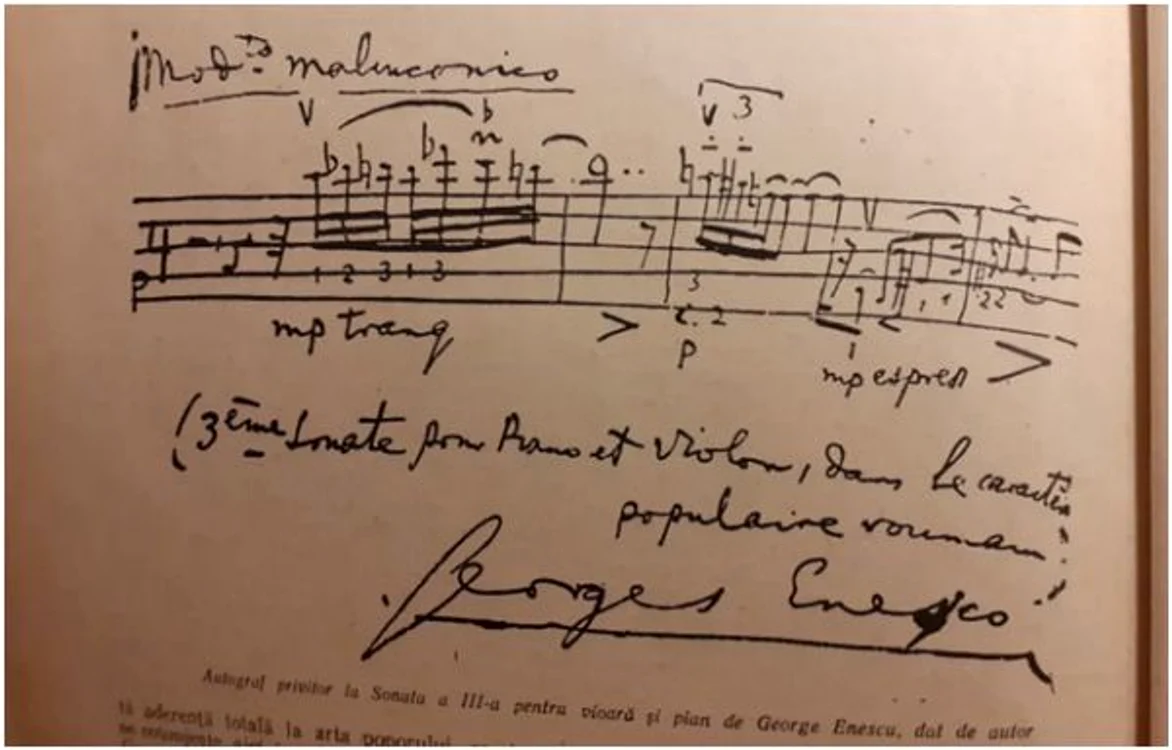 Modto malinconico
V 3
1 2 3 1 3
3
1. 2
1 1 22
mp tranq
p
mp espress
(3ème Sonate pour Piano et Violon, dans le caractère
populaire roumain.)
Georges Enesco
Autograf privitor la Sonata a III-a pentru vioară și pian de George Enescu, dat de autor
tă aderență totală la arta poporului,